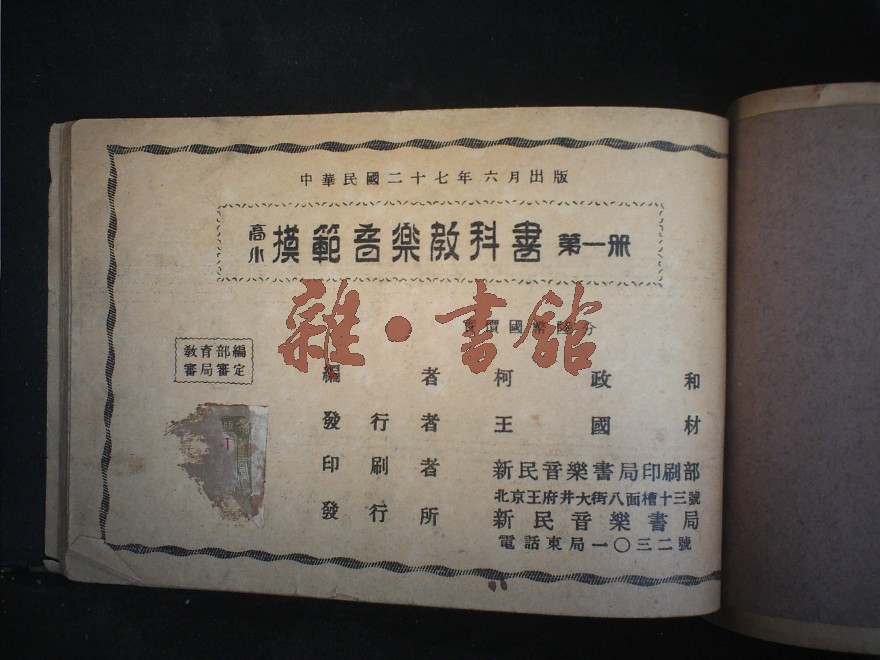 中華民國二十七年六月出版
高小 模範音樂教科書 第一册
實價國幣陸分
雜·書館
教育部編
審局審定
編者 柯政和
發行者 王國材
印刷者 新民音樂書局印刷部
北京王府井大街八面槽十三號
發行所 新民音樂書局
電話東局一〇三二號